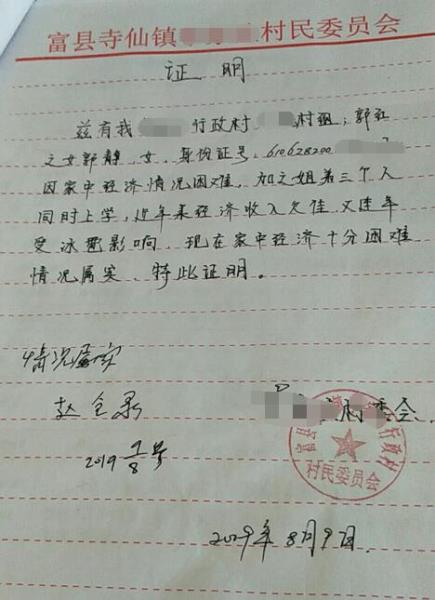 富县寺仙镇 村民委员会
证明
兹有我 行政村 村组，郭
之女郭静，女，身份证号，610628200
因家中经济情况困难，加之姐弟三个人
同时上学，近年来经济收入欠佳 又连年
受冰雹影响，现在家中经济十分困难
情况属实、特此证明。
情况属实
赵全录
2019 9/8号
村委会
富县 行政村
村民委员会
2019年8月9日